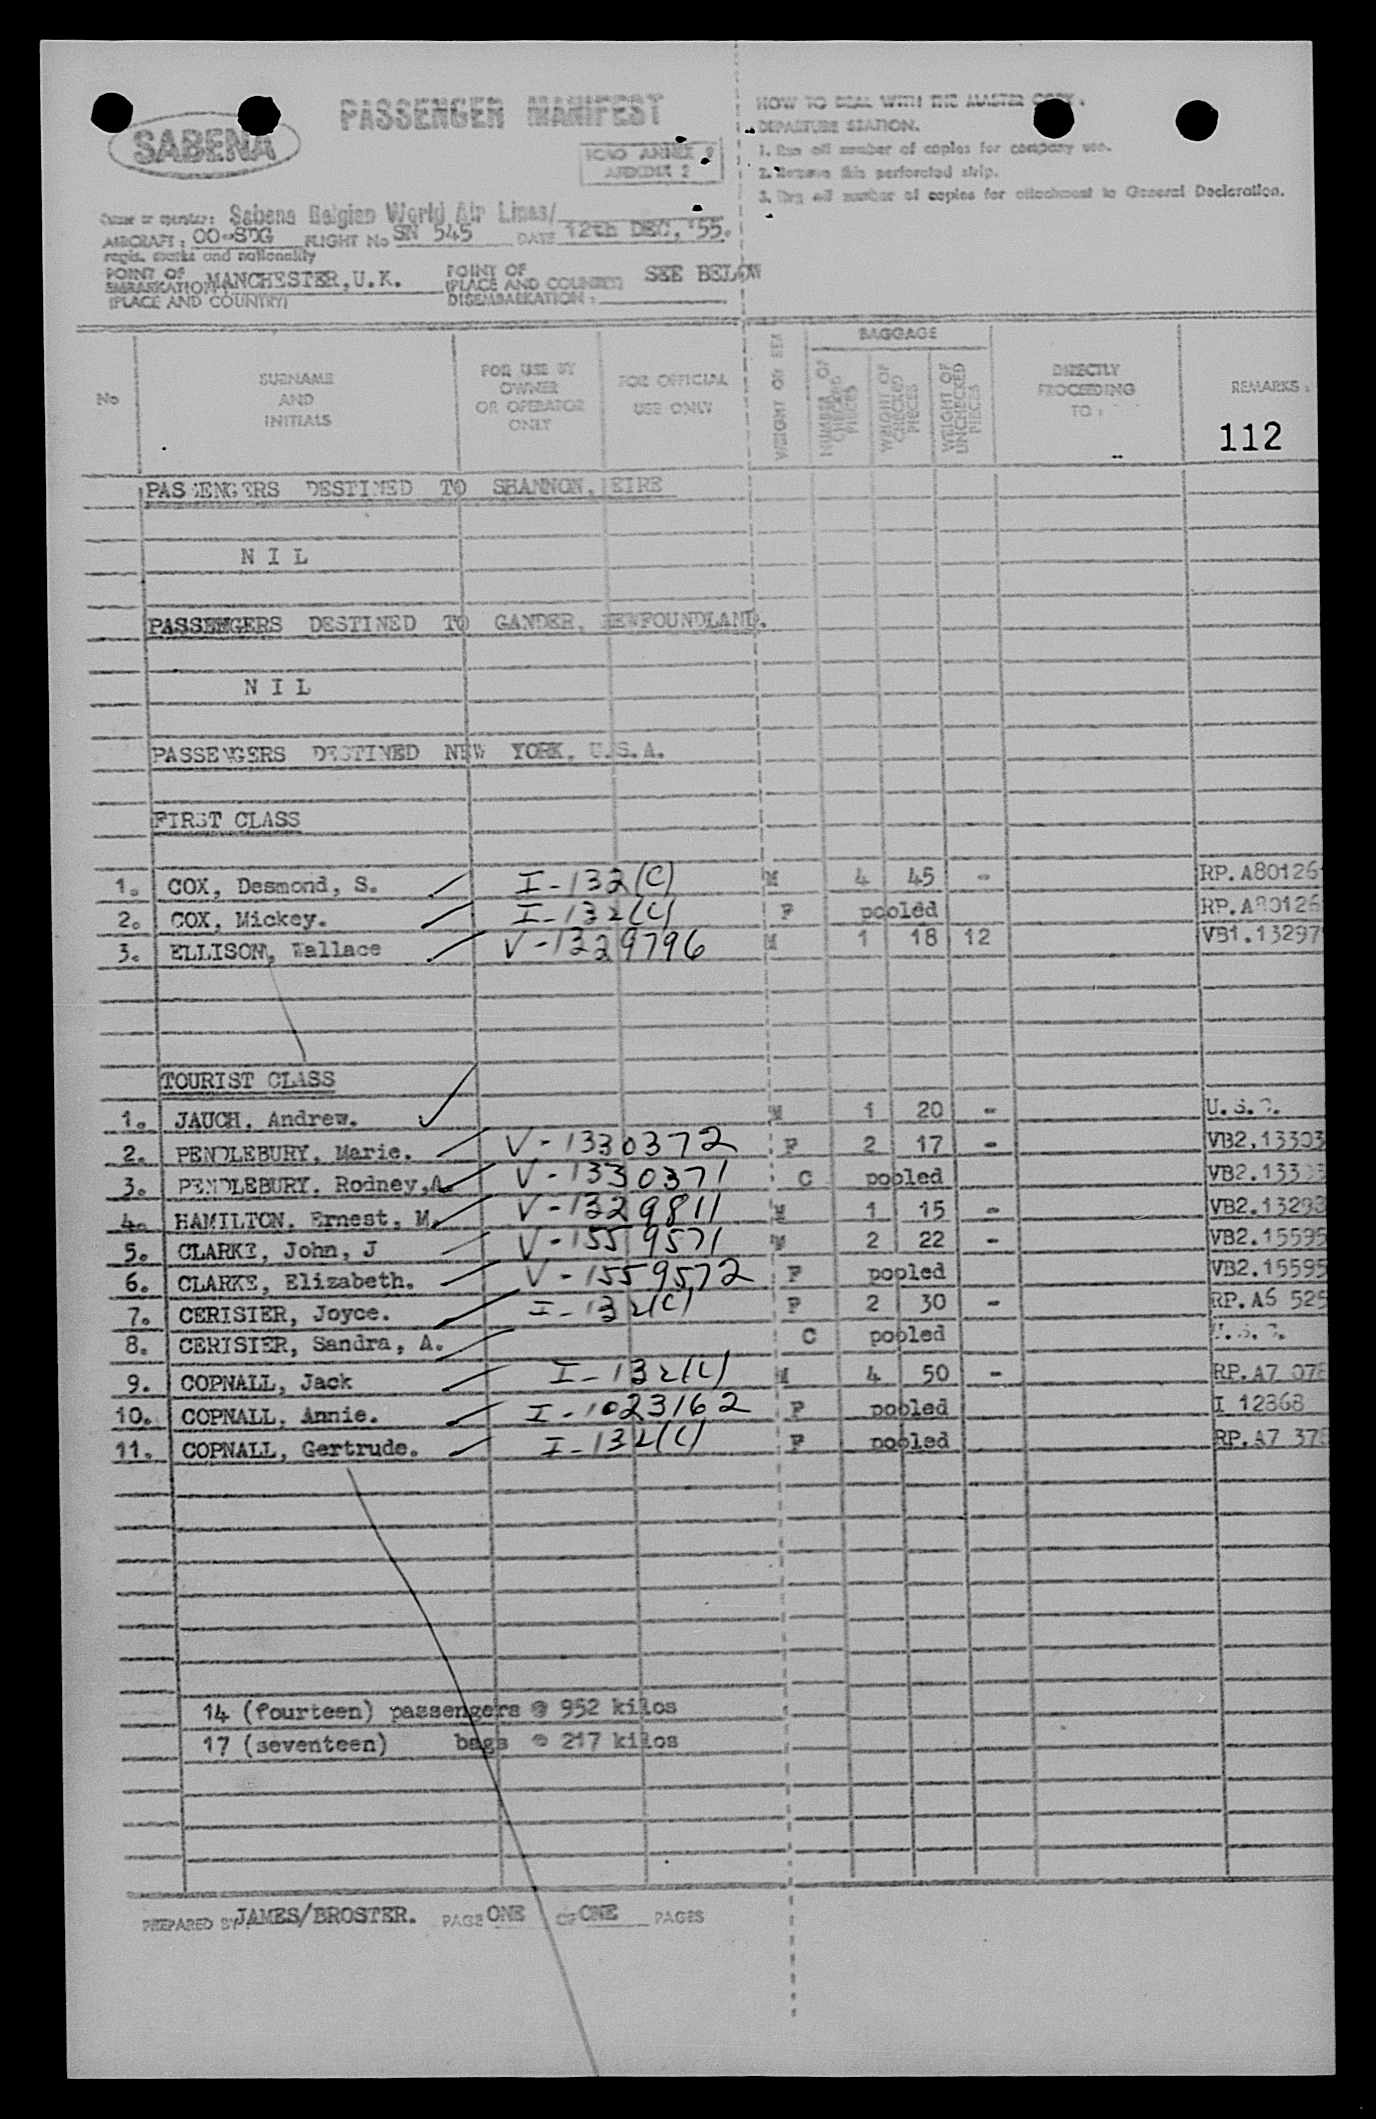 SABENA
PASSENGER MANIFEST
ICAO ANNEX 9
APENDIX 2
HOW TO DEAL WITH THE MASTER COPY.
DEPARTURE STATION.
1. Run off number of copies for company use.
2. Remove this perforated strip.
3. Run off number of copies for attachment to General Declaration.
Owner or operator: Sabena Belgian World Air Lines/
AIRCRAFT: OO-SDG FLIGHT No SN 545 DATE 12th DEC, '55.
regis. marks and nationality
POINT OF EMBARKATION MANCHESTER, U.K. POINT OF (PLACE AND COUNTRY) DISEMBARKATION: SEE BELOW
(PLACE AND COUNTRY)
No
SURNAME AND INITIALS
FOR USE BY OWNER OR OPERATOR ONLY
FOR OFFICIAL USE ONLY
WEIGHT OR SEX
BAGGAGE
NUMBER OF CHECKED PIECES
WEIGHT OF CHECKED PIECES
WEIGHT OF UNCHECKED PIECES
DIRECTLY PROCEEDING TO:
REMARKS:
112
PASSENGERS DESTINED TO SHANNON, EIRE
N I L
PASSENGERS DESTINED TO GANDER, NEWFOUNDLAND.
N I L
PASSENGERS DESTINED NEW YORK, U.S.A.
FIRST CLASS
1. COX, Desmond, S. I-132(C) M 4 45 - RP.A80126
2. COX, Mickey. I-132(C) F pooled RP.A80126
3. ELLISON, Wallace V-1329796 M 1 18 12 VB1.13297
TOURIST CLASS
1. JAUCH, Andrew. M 1 20 - U.S.
2. PENDLEBURY, Marie. V-1330372 F 2 17 - VB2.13303
3. PENDLEBURY. Rodney,A. V-1330371 C pooled VB2.1330
4. HAMILTON, Ernest, M. V-1329811 M 1 15 - VB2.13298
5. CLARKE, John, J V-1559571 M 2 22 - VB2.15595
6. CLARKE, Elizabeth. V-1559572 F pooled VB2.15595
7. CERISIER, Joyce. I-132(C) F 2 30 - RP.A6 525
8. CERISIER, Sandra, A. C pooled
9. COPNALL, Jack I-132(C) M 4 50 - RP.A7 078
10. COPNALL, Annie. I-1023162 F pooled I 12868
11. COPNALL, Gertrude. I-132(C) F pooled RP.A7 378
14 (fourteen) passengers @ 952 kilos
17 (seventeen) bags @ 217 kilos
PREPARED BY JAMES/BROSTER. PAGE ONE OF ONE PAGES